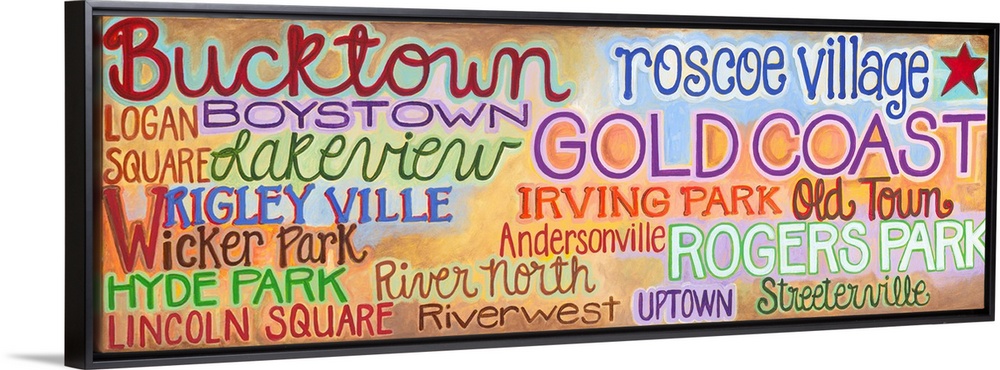 Bucktown
roscoe village
LOGAN SQUARE
BOYSTOWN
Lakeview
GOLD COAST
WRIGLEY VILLE
IRVING PARK
Old Town
Wicker Park
Andersonville
ROGERS PARK
HYDE PARK
River North
LINCOLN SQUARE
Riverwest
UPTOWN
Streeterville